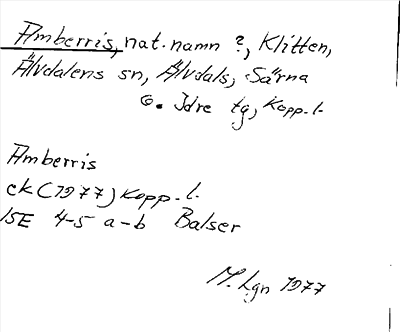 Åmberris, nat.namn ?, Klitten,
Älvdalens sn, Älvdals, Särna
o. Idre tg, Kopp. l.
Åmberris
ek (1977) Kopp. l.
15E 4-5 a-b Balser
M. Lgn 1977